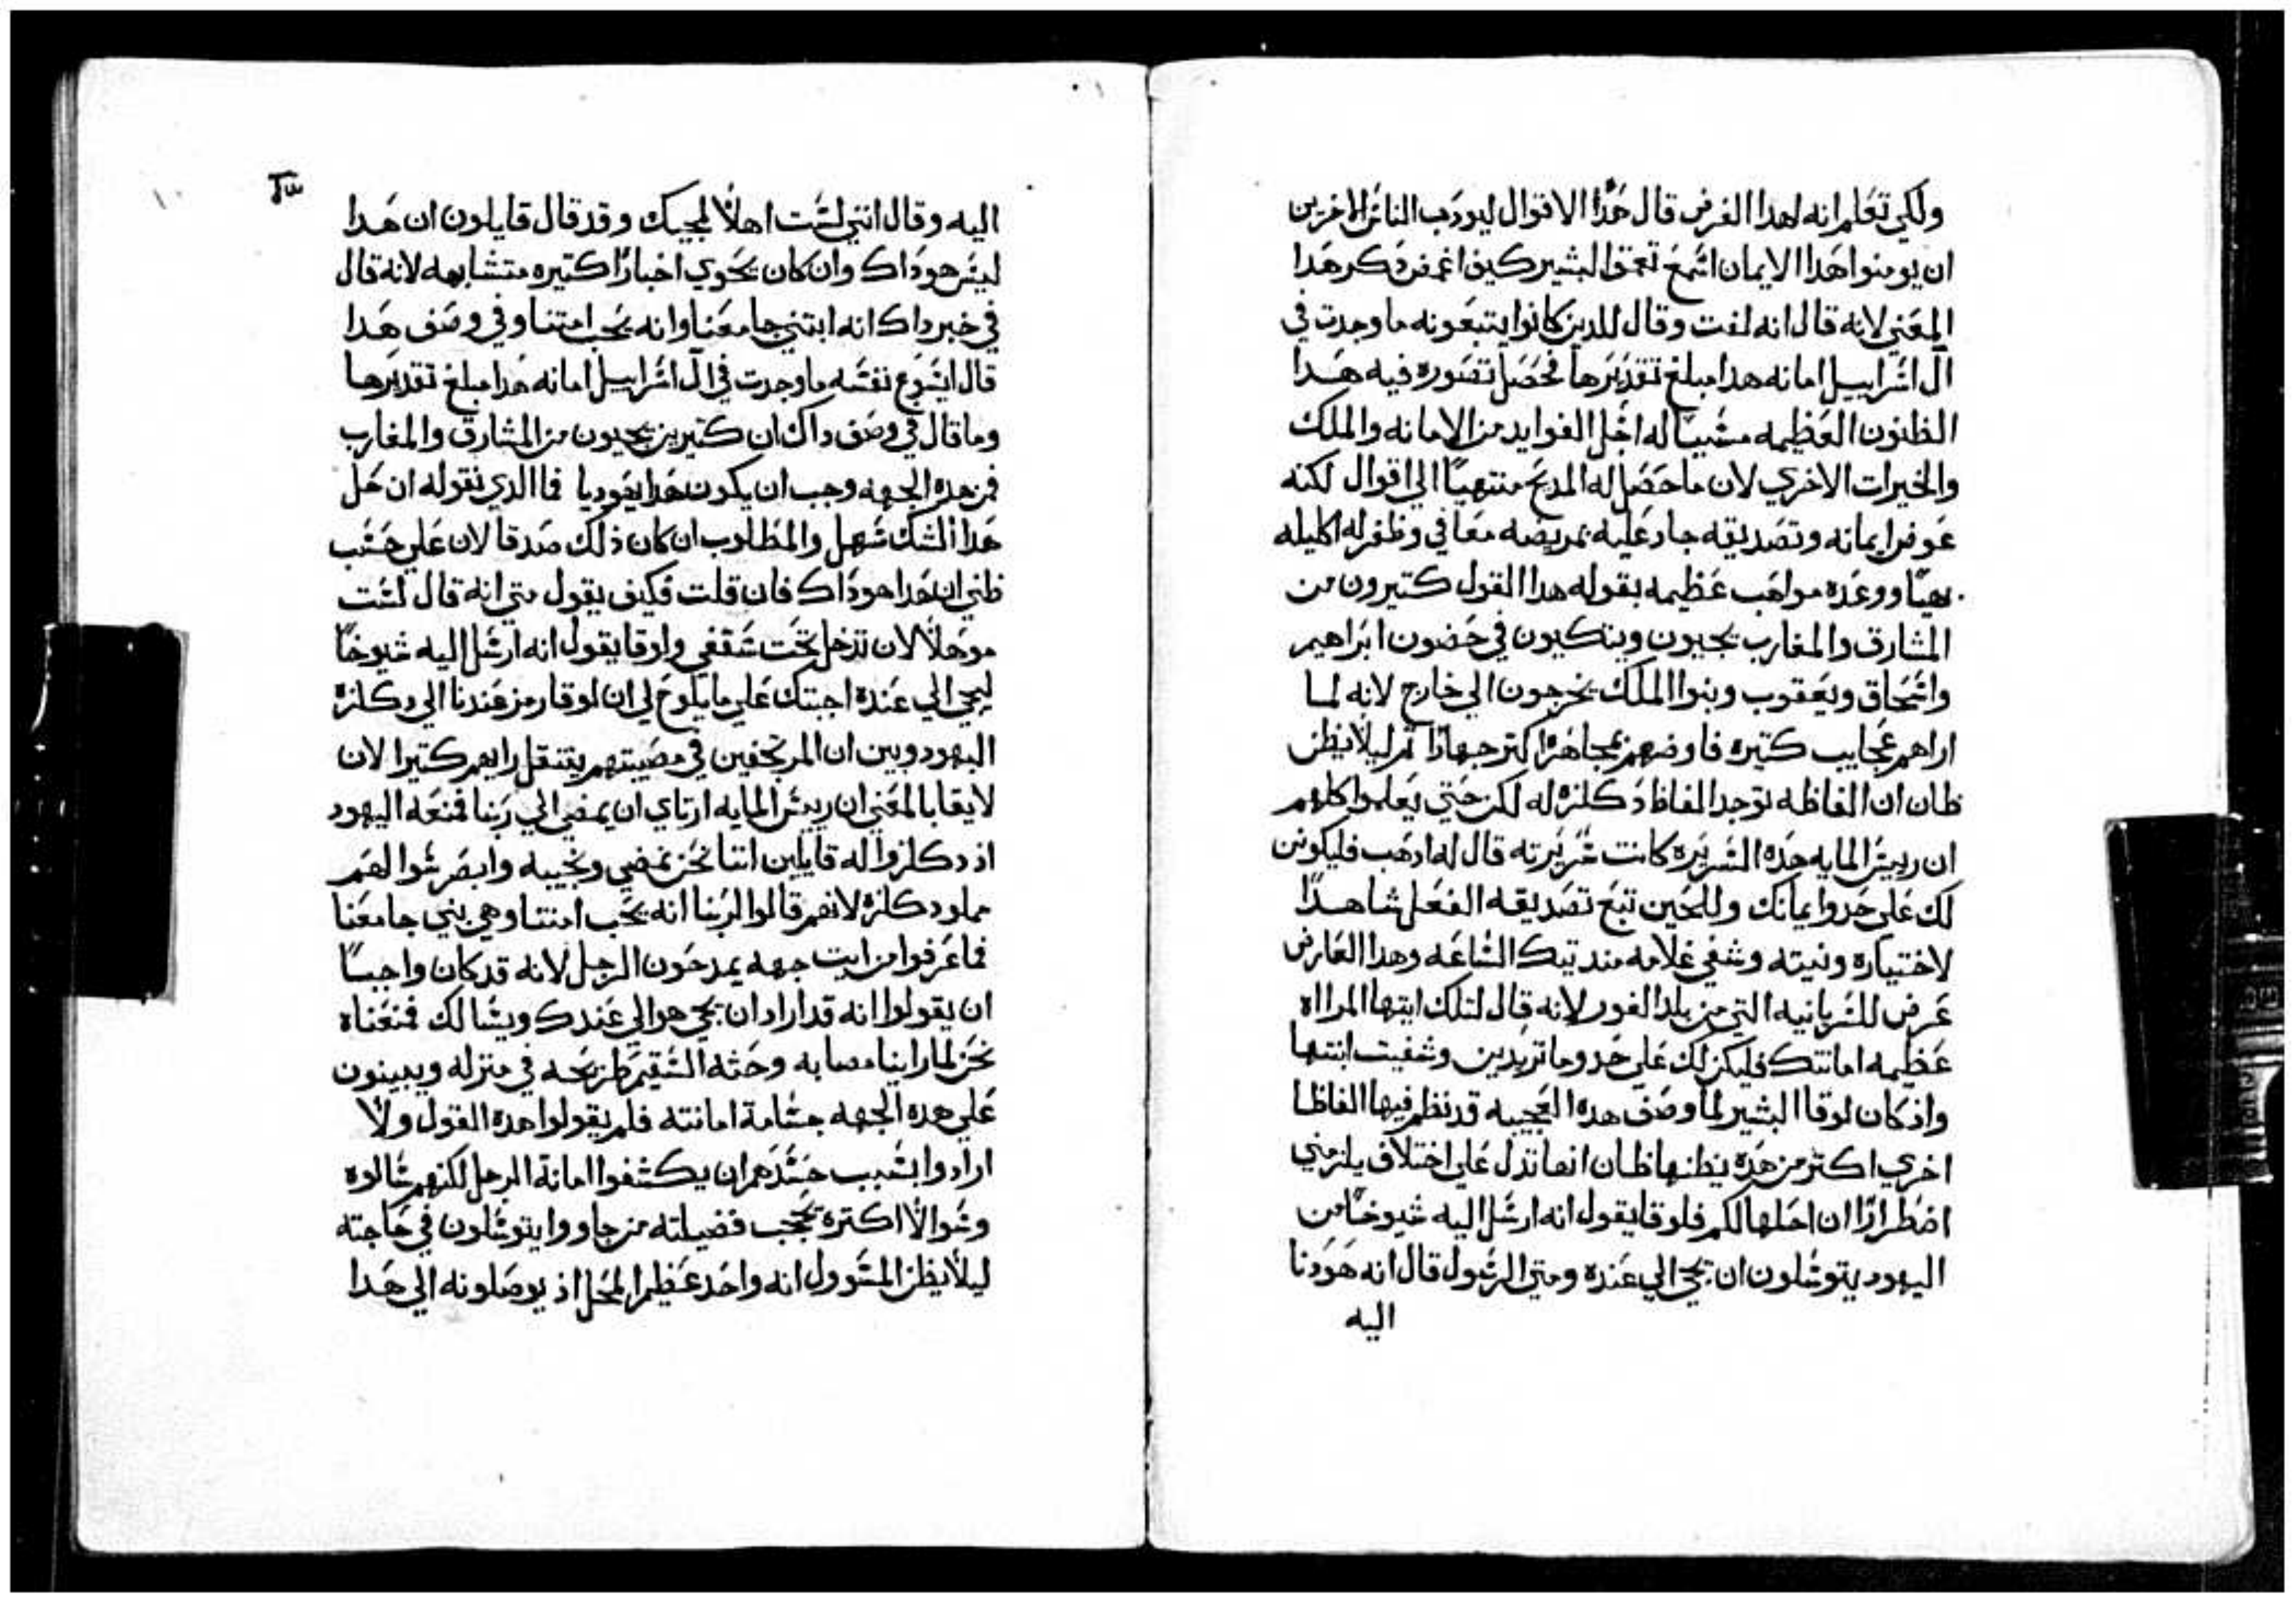 ولكي تعلم انه لهدا الغرض قال هدا الاقوال ليودب الناس الاخرين
ان يومنوا هدا الايمان اسمع تعمق البشير كيف اغمض دكر هدا
المعني لانه قال انه لفت وقال للدين كانوا يتبعونه ما وجدت في
ال اسراييل امانه هدا مبلغ تقديرها فحصل تصوره فيه هدا
الظنون العظيمه مسببا له اجل الفوايد من الامانه والملك
والخيرات الاخري لان ما حصل له المديح منتهيا الي اقوال لكنه
عوض ايمانه وتصديقه جاد عليه بمريضه معافي وظفر له اكليله
بهيا ووعده مواهب عظيمه بقوله هدا القول كتيرون من
المشارق والمغارب يجيون ويتكيون في حضون ابراهيم
واسحاق ويعقوب وبنوا الملك يخرجون الي خارج لانه لما
اراهم عجايب كتيره فاوضهم بمجاهره اكتر جهارا تم ليلا يظن
ظان ان الفاظه توجد الفاظ دكلزه له لكن حتي يعلموا كلهم
ان رييس المايه هده السريره كانت سريرته قال له ادهب فليكونن
لك علي حدو ايمانك وللحين تبع تصديقه الفعل شاهدا
لاختياره ونيته وشفي غلامه مند تيك الساعه وهدا العارض
عرض للسريانيه التي من بلد الغور لانه قال لتلك ايتها المراه
عظيمه امانتك فليكن لك علي حدو ما تريدين وشفيت ابنتها
واد كان لوقا البشير لما وصف هده العجيبه قد نظم فيها الفاظا
اخري اكتر من هده يظنها ظان انها تدل علي اختلاف يلزمني
اضطرارا ان احلها لكم فلوقا يقول انه ارسل اليه شيوخا من
اليهود يتوسلون ان يجي الي عنده ومتي الرسول قال انه هو دنا
اليه
اليه وقال انني لست اهلا لمجيك وقد قال قايلون ان هدا
ليس هو داك وان كان يحوي اخبارا كتيره متشابهه لانه قال
في خبر داك انه ابتني جامعنا وانه يحب امتنا وفي وصف هدا
قال ايسوع نفسه ما وجدت في ال اسراييل امانه هدا مبلغ تقديرها
وما قال في وصف داك ان كتيرين يجيون من المشارق والمغارب
فمن هده الجهه وجب ان يكون هدا يهوديا فما الدي نقوله ان حل
هدا الشك سهل والمطلوب ان كان ذلك صدقا لان علي حسب
ظني ان هدا هو داك فان قلت فكيف يقول متي انه قال لست
موهلا لان تدخل تحت سقفي ولوقا يقول انه ارسل اليه شيوخا
ليجي الي عنده اجبتك علي ما يلوح لي ان لوقا رمز عندنا الي دكلزه
اليهود وبين ان المرتجفين في مصيبتهم ينتقل رايهم كتيرا لان
لايقا بالمعني ان رييس المايه ارتاي ان يمضي الي ربنا فمنعه اليهود
اذ دكلزوا له قايلين اننا نحن نمضي ونجيبه وابصر سوالهم
مملو دكلزه لانهم قالوا لربنا انه يحب امتنا وهو بني جامعنا
فما عرفوا من ايت جهه يمدحون الرجل لانه قد كان واجبا
ان يقولوا انه قد اراد ان يجي هو الي عندك ويسالك فمنعناه
نحن لما راينا مصابه وجثة السقيم طريحه في منزله ويبينون
علي هده الجهه جسامة امانته فلم يقولوا هده القول ولا
ارادوا بسبب حسدهم ان يكشفوا امانة الرجل لكنهم سالوه
وسوالا اكتره يحجب فضيلته من جاووا يتوسلون في حاجته
ليلا يظن المسوول انه واحد عظيم المحل اذ يوصلونه الي هدا